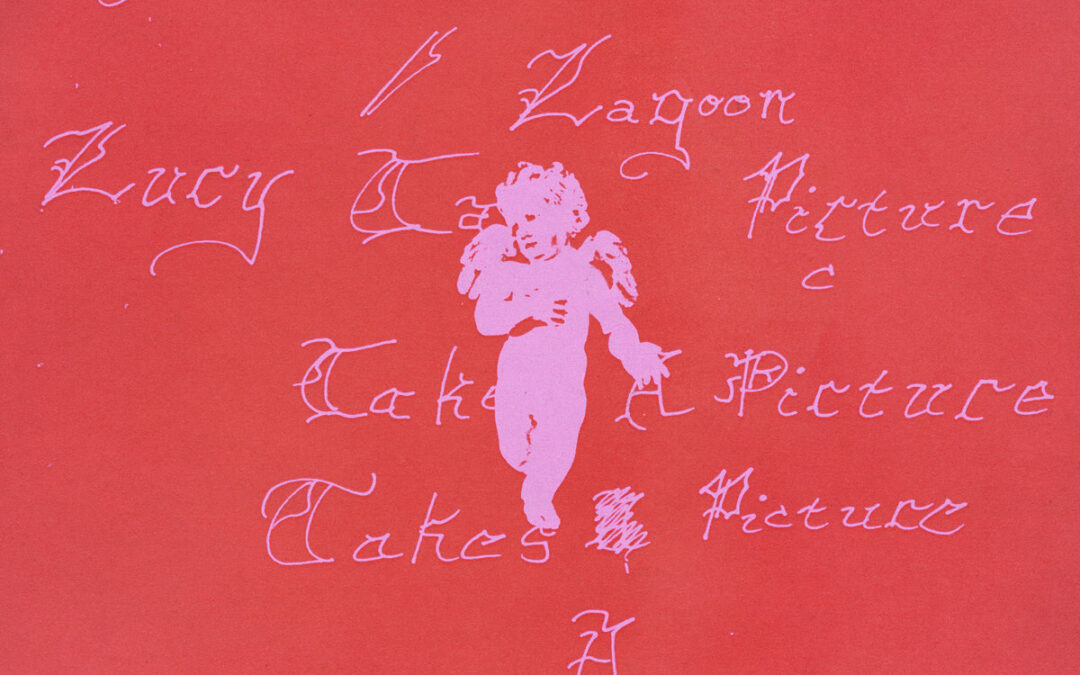 Lagoon
Lucy Ta Picture
c
Take A Picture
Takes Picture
A